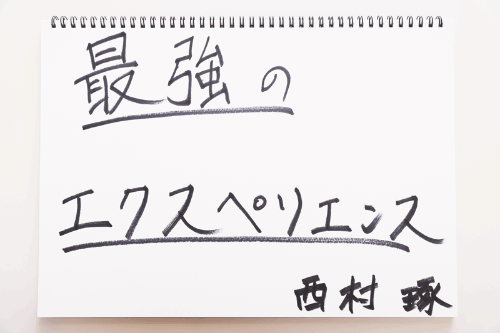 最強の
エクスペリエンス
西村 琢